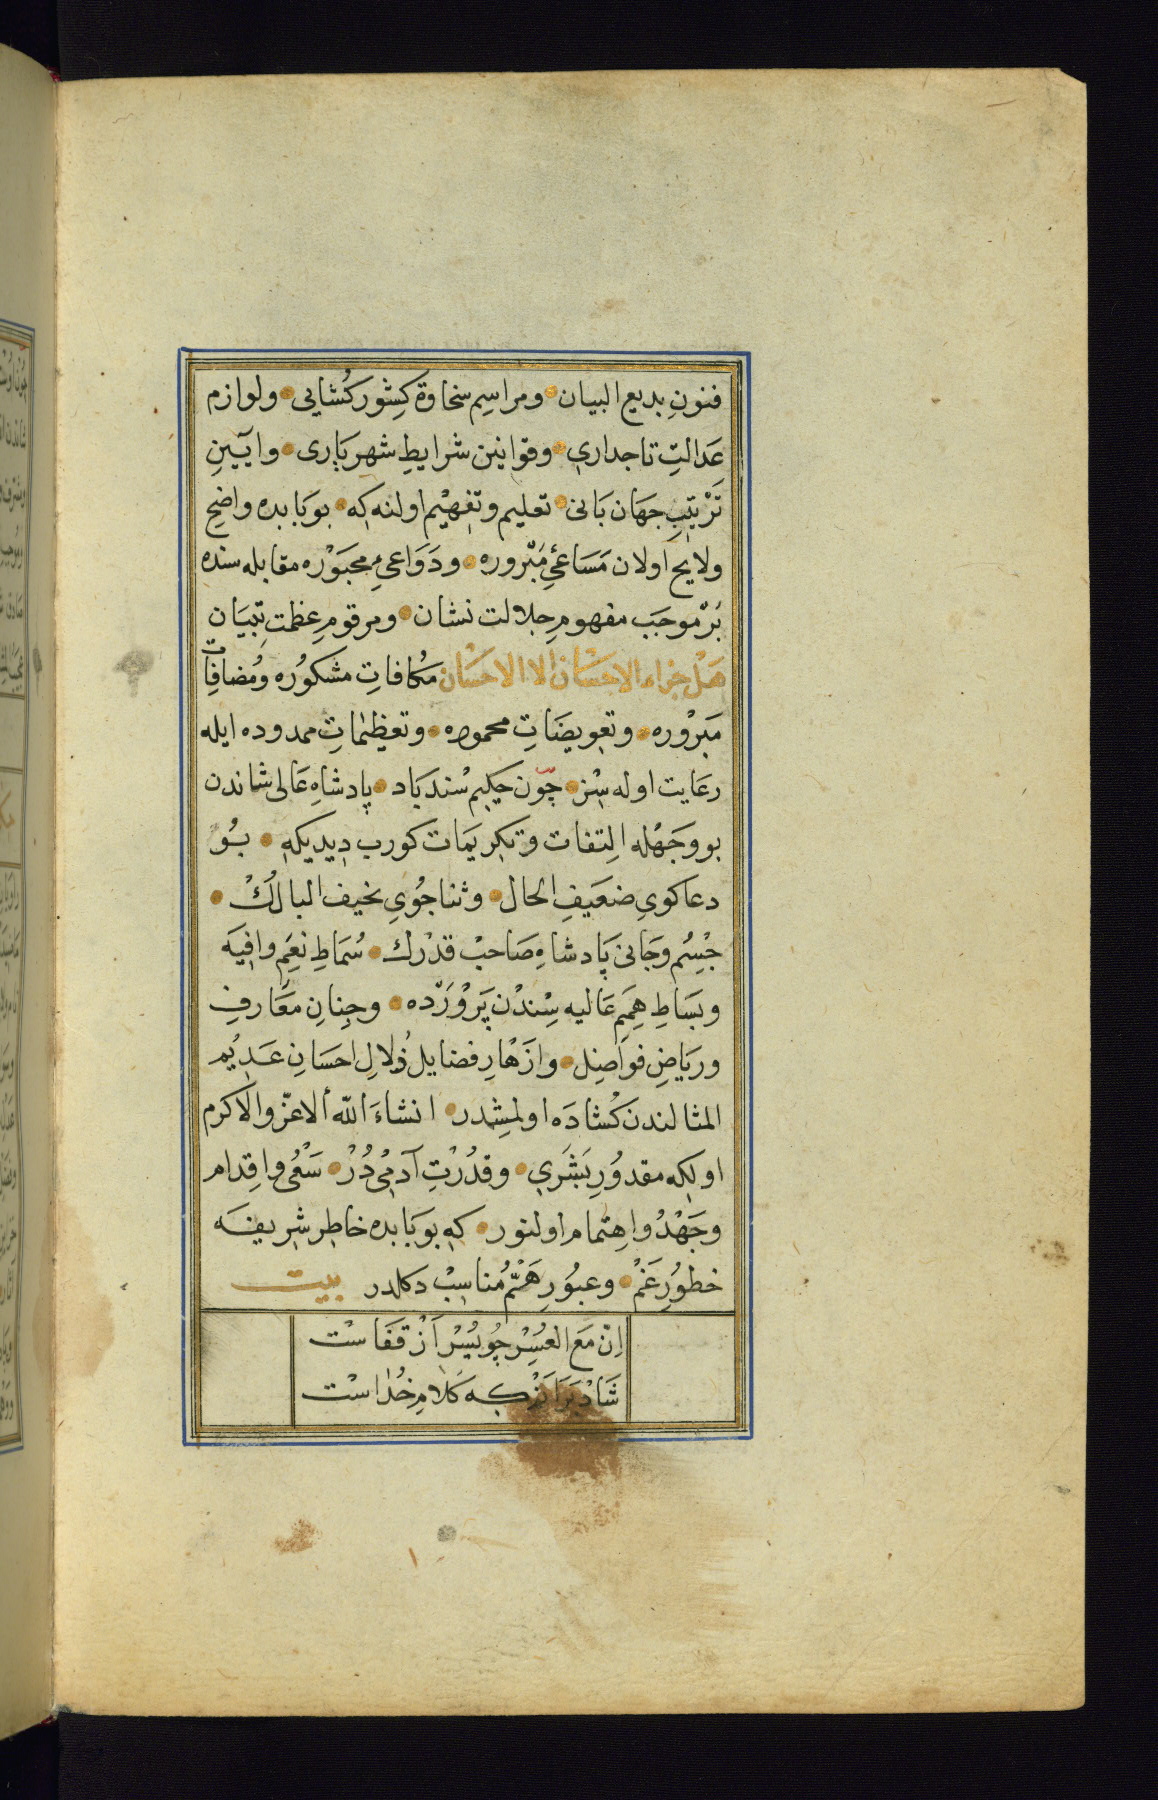 فنونِ بديع البيان ومراسِمِ سخاوة كِشْوركُشايى ولوازم
عَدالتِ تاجدارىِ وقوانين شرايطِ شهريارى وآيينِ
تَرْتيبِ جهان بانى تعليم وتفهيم اولنه كه بوبابده واضح
ولايح اولان مَسَاعىِٔ مَبْروره ودَوَاعىِٔ مجبَوْره مقابله سنده
بَرْموجَب مفهومِ جلالت نشان ومرقومِ عظمت تِبيَان
هَلْ جزاء الاحسَان الا الاحسَان مكافاتِ مشكوُره ومُضافاتِ
مَبَرْوره وتعويضَاتِ محموده وتعظيمَاتِ ممدوده ايله
رعايت اوله سِزْ چوّن حكيم سْندَباد پادشاهِ عَالى شاندن
بو وجَهْله اِلتفات وتكريمَات كورب ديديكه بُو
دعاكوىِ ضعَيفِ الحال وثناجُوىِ نخيف البالُكْ
جْسِمُ وجَانى پادشاهِ صَاحبْ قدْرك سُمَاطِ نعَِمِ وافيَه
وبَسَاطِ هِمَمِ عَاليه سِنْدْن پَرْوَرْده وجِنانِ معَارفِ
ورياضِ فواضِل وازَهْارِ فضايل زُلالِ احسَانِ عَديُم
المثالندن كُشادَه اولمِشْدر انشاءَ الله الاعزّ والاكرم
اولكه مقدوُرِ بَشَرىِ وقدُرْتِ آدمْىِ دُرْ سَعْى واقدام
وجَهْدُ واِهتمام اولنور كه بوبابده خاطرِ شريفَه
خطوُرِ غَمْ وعبوُرِ هَمّْ مُناسِبْ دكلدر بيت
اِنّ مَعَ العُسِْر چُو يُسْرْ اَزْ قفَاسْت
شَادْ بَرَانَمْ كه كَلامِ خُداسْت